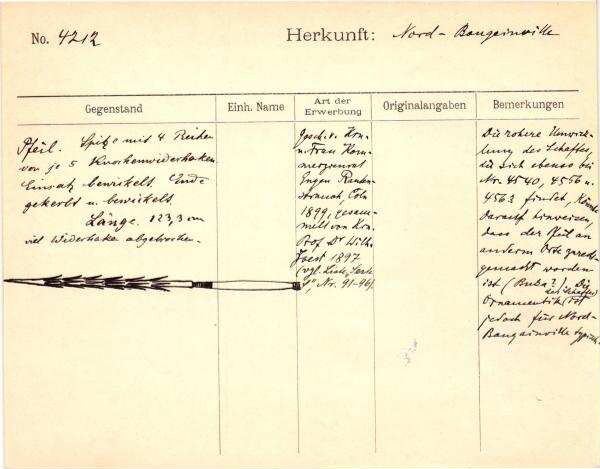 No. 4212
Herkunft: Nord-Bougainville
Gegenstand
Einh. Name
Art der Erwerbung
Originalangaben
Bemerkungen
Pfeil. Spitze mit 4 Reihen
von je 5 Knochenwiderhaken
Einsatz bewickelt. Ende
gekerbt u. bewickelt.
Länge. 123,3 cm
viel Widerhaken abgebrochen.
Gesch. v. Hrn.
u. Frau Kom-
merzienrat
Eugen Rauten-
strauch, Cöln
1899, gesam-
melt von Hrn.
Prof Dr Wilh.
Joest 1897
(vgl. Liste, Seite
Nr. 91-96).
Die rohere Umwick-
lung des Schaftes,
die sich ebenso bei
Nr. 4540, 4556 u.
4563 findet, könnte
darauf hinweisen,
dass der Pfeil an
anderm Orte
gemacht worden
ist (Buka?). Die
Ornamentik des Schaftes ist
jedoch für Nord-
Bougainville typisch.